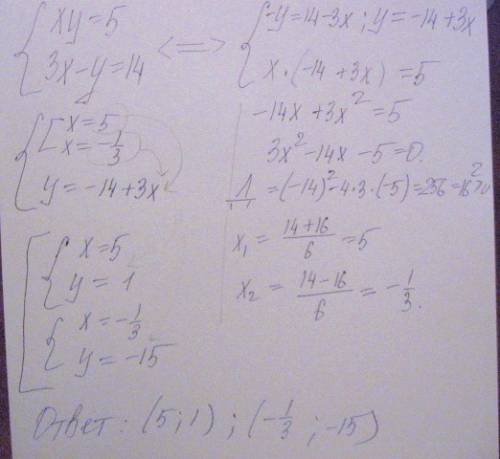 { xy=5
3x-y=14 <=> { -y=14-3x; y=-14+3x
x·(-14+3x)=5
-14x+3x²=5
3x²-14x-5=0.
Д=(-14)²-4·3·(-5)=256=16²>0
x₁=(14+16)/6=5
x₂=(14-16)/6=-1/3.
{ [ x=5
x=-1/3
y=-14+3x
[ { x=5
y=1
{ x=-1/3
y=-15
Ответ: (5;1); (-1/3;-15)